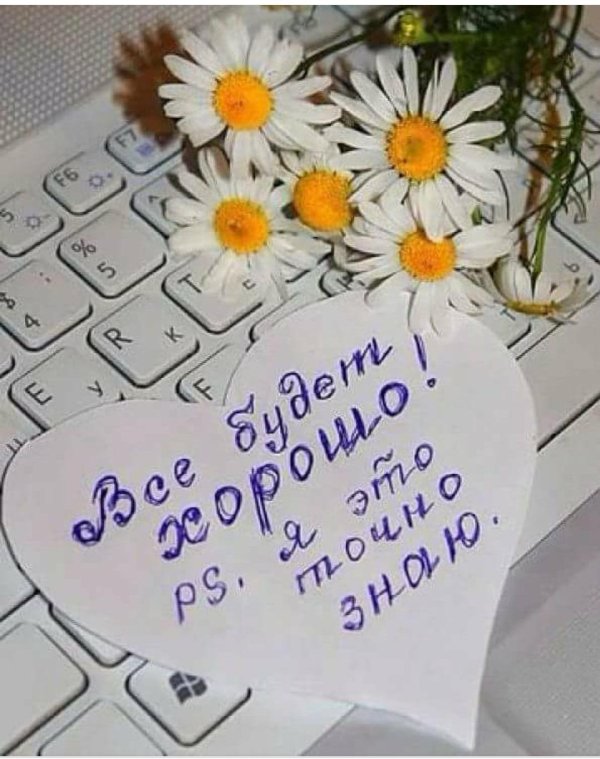 F7
F6
5
%
5
$
4
T
Е
R
К
E
У
F
6
Все будет
хорошо!
PS. я это
точно
знаю.